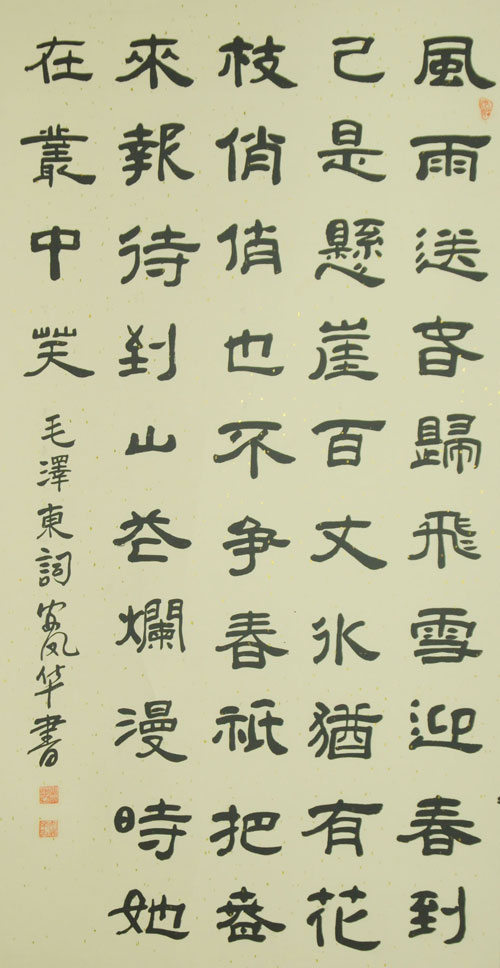 風雨送春歸飛雪迎春到
已是懸崖百丈氷猶有花
枝俏俏也不争春祇把春
來報待到山花爛漫時她
在叢中笑
毛澤東詞安凤华書